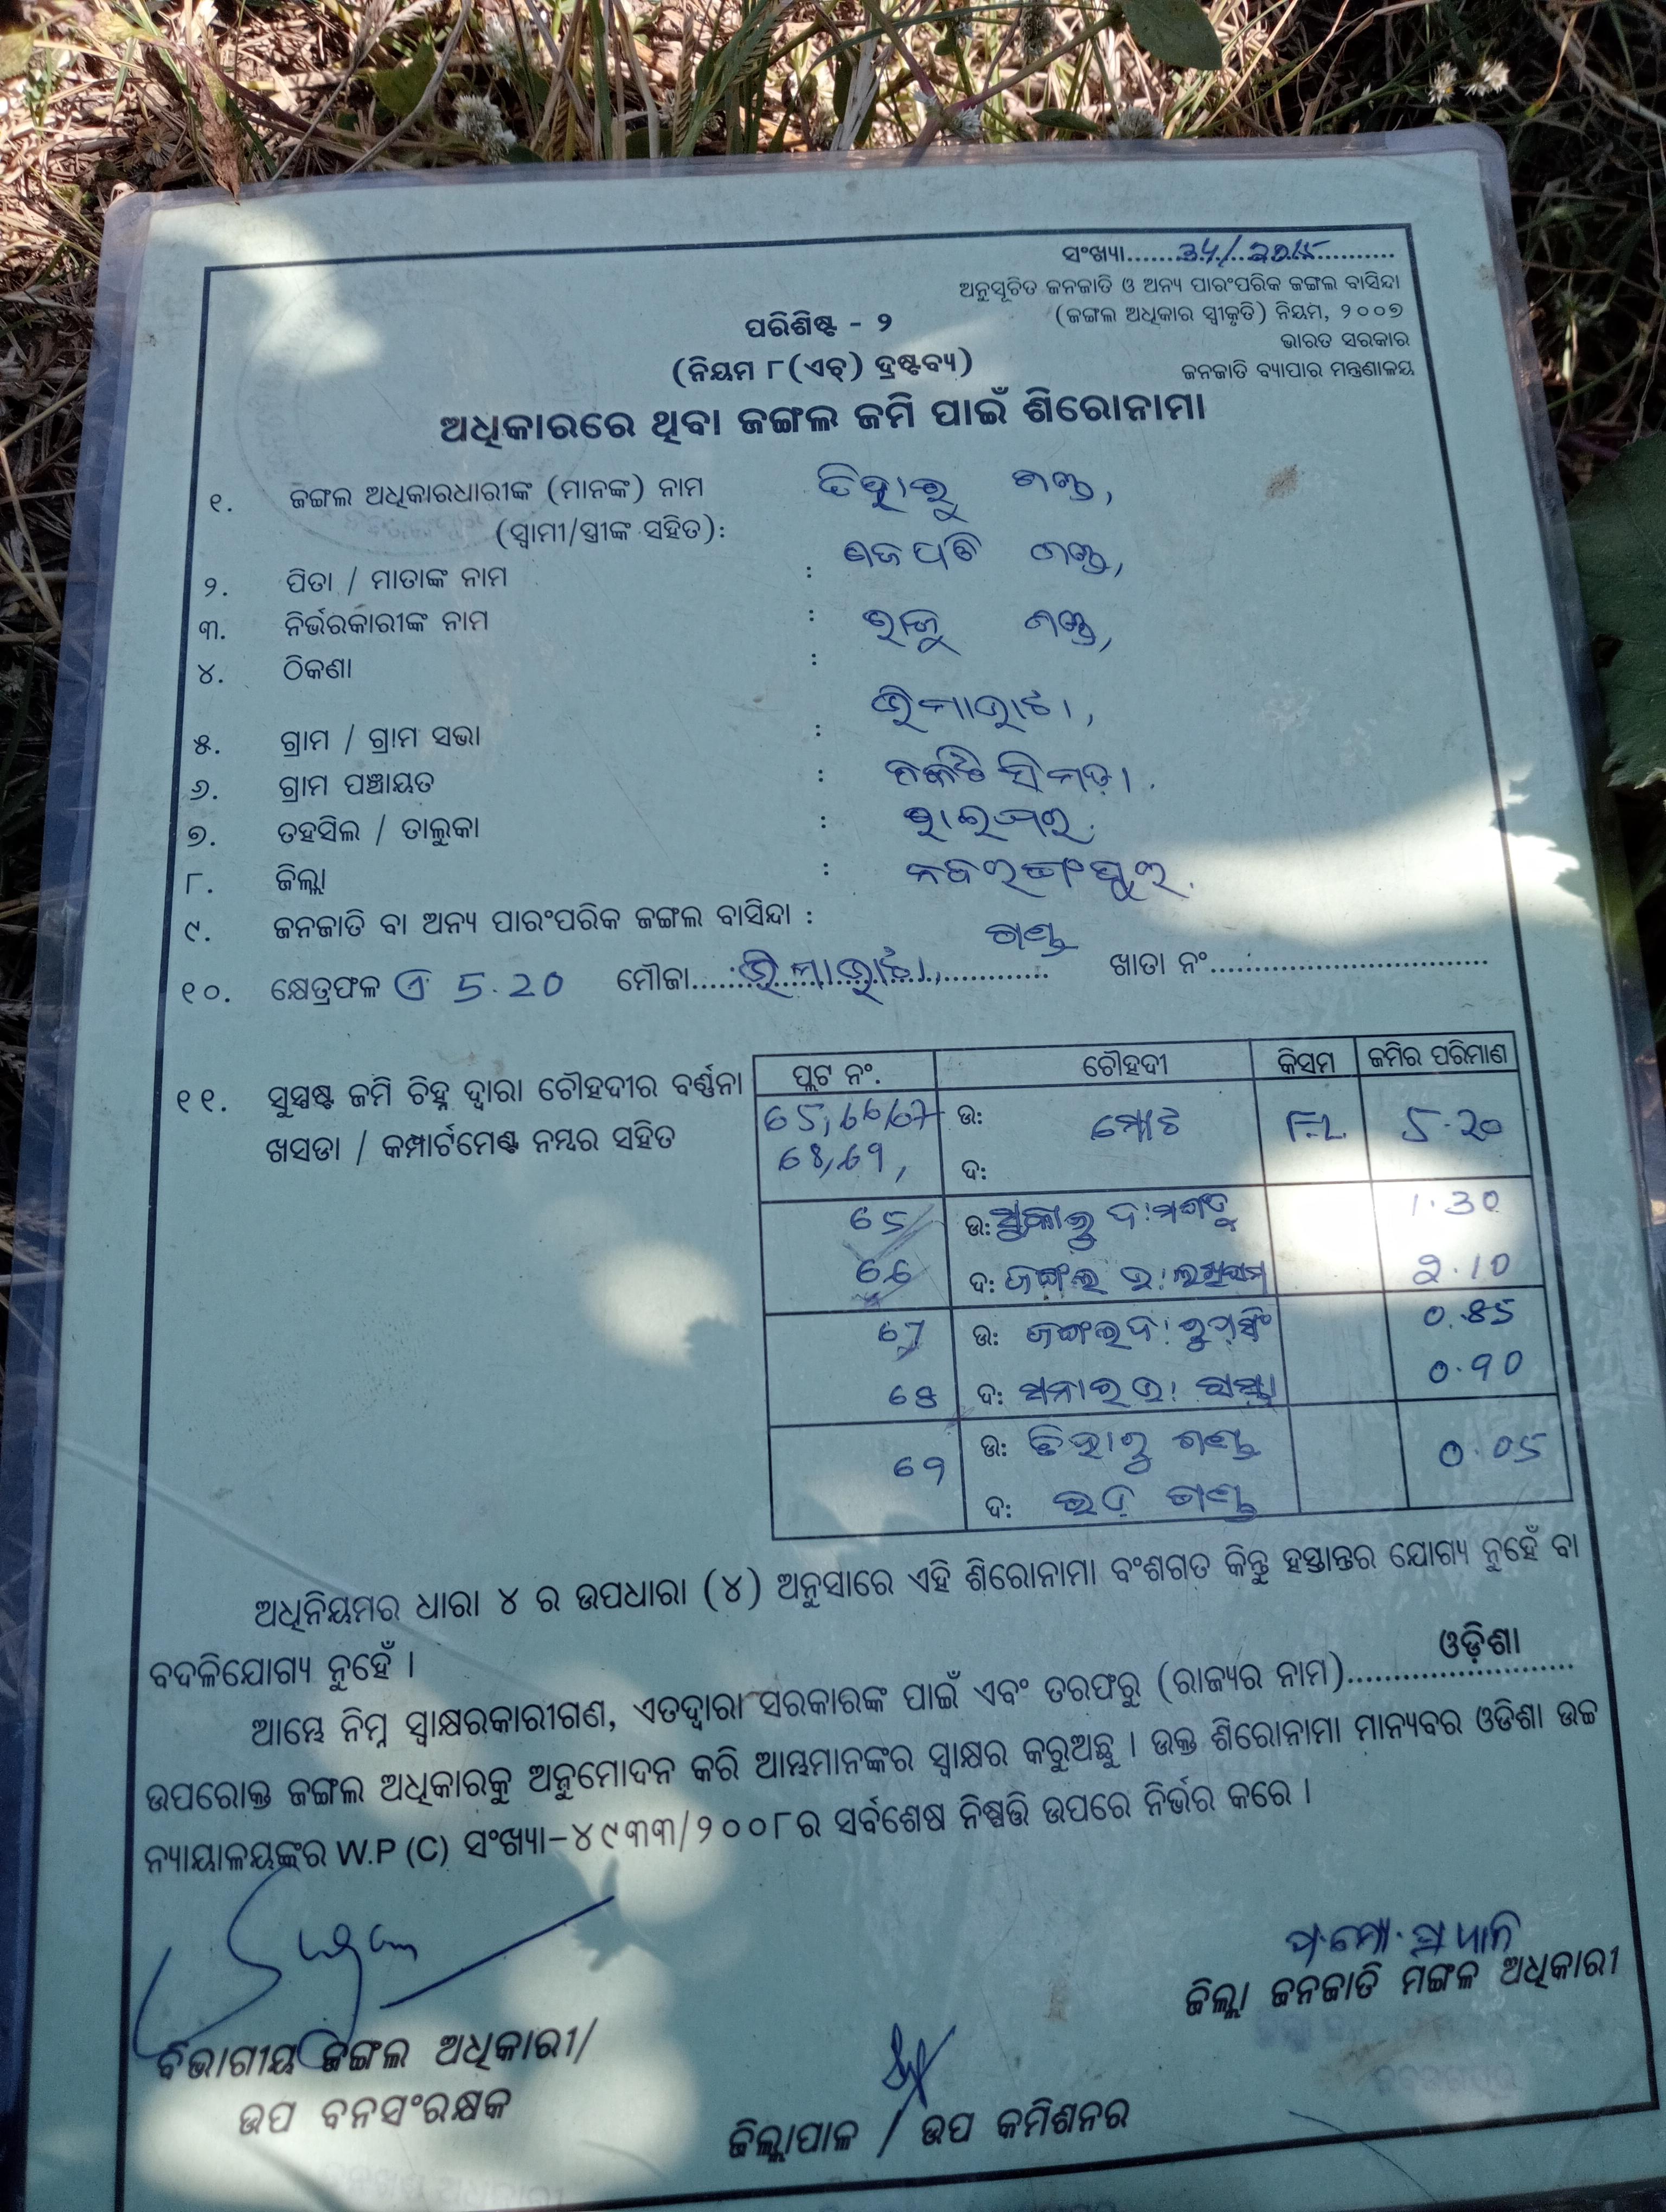 ସଂଖ୍ୟା.......34/2015.......
ଅନୁସୂଚିତ ଜନଜାତି ଓ ଅନ୍ୟ ପାରଂପରିକ ଜଙ୍ଗଲ ବାସିନ୍ଦା
(ଜଙ୍ଗଲ ଅଧିକାର ସ୍ୱୀକୃତି) ନିୟମ, ୨୦୦୭
ଭାରତ ସରକାର
ଜନଜାତି ବ୍ୟାପାର ମନ୍ତ୍ରଣାଳୟ
ପରିଶିଷ୍ଟ - ୨
(ନିୟମ ୮(ଏଚ୍) ଦ୍ରଷ୍ଟବ୍ୟ)
ଅଧିକାରରେ ଥିବା ଜଙ୍ଗଲ ଜମି ପାଇଁ ଶିରୋନାମା
୧. ଜଙ୍ଗଲ ଅଧିକାରଧାରୀଙ୍କ (ମାନଙ୍କ) ନାମ ତିହାରୁ ଗଣ୍ଡ,
(ସ୍ୱାମୀ/ସ୍ତ୍ରୀଙ୍କ ସହିତ):
୨. ପିତା / ମାତାଙ୍କ ନାମ : ଗଜପତି ଗଣ୍ଡ,
୩. ନିର୍ଭରକାରୀଙ୍କ ନାମ : ରାଜୁ ଗଣ୍ଡ,
୪. ଠିକଣା :
୫. ଗ୍ରାମ / ଗ୍ରାମ ସଭା :
୬. ଗ୍ରାମ ପଞ୍ଚାୟତ :
୭. ତହସିଲ / ତାଲୁକା : ରାଇଘର.
୮. ଜିଲ୍ଲା : ନବରଙ୍ଗପୁର.
୯. ଜନଜାତି ବା ଅନ୍ୟ ପାରଂପରିକ ଜଙ୍ଗଲ ବାସିନ୍ଦା : ଗଣ୍ଡ
୧୦. କ୍ଷେତ୍ରଫଳ ଏ 5.20 ମୌଜା.............. ଖାତା ନଂ..............................
୧୧. ସୁସ୍ପଷ୍ଟ ଜମି ଚିହ୍ନ ଦ୍ୱାରା ଚୌହଦୀର ବର୍ଣ୍ଣନା
ଖସଡା / କମ୍ପାର୍ଟମେଣ୍ଟ ନମ୍ବର ସହିତ
ପ୍ଲଟ ନଂ. ଚୌହଦୀ କିସମ ଜମିର ପରିମାଣ
65,66/67 ଉ: ମୋଟ F.L 5.20
68,69, ଦ:
65 ଉ: 1.30
66 ଦ: ଜଙ୍ଗଲ 2.10
67 ଉ: 0.85
68 ଦ: 0.90
69 ଉ: ତିହାରୁ ଗଣ୍ଡ 0.05
ଦ: ଗଣ୍ଡ
ଅଧିନିୟମର ଧାରା ୪ ର ଉପଧାରା (୪) ଅନୁସାରେ ଏହି ଶିରୋନାମା ବଂଶଗତ କିନ୍ତୁ ହସ୍ତାନ୍ତର ଯୋଗ୍ୟ ନୁହେଁ ବା
ବଦଳିଯୋଗ୍ୟ ନୁହେଁ ।
ଆମ୍ଭେ ନିମ୍ନ ସ୍ୱାକ୍ଷରକାରୀଗଣ, ଏତଦ୍ୱାରା ସରକାରଙ୍କ ପାଇଁ ଏବଂ ତରଫରୁ (ରାଜ୍ୟର ନାମ)......ଓଡ଼ିଶା......
ଉପରୋକ୍ତ ଜଙ୍ଗଲ ଅଧିକାରକୁ ଅନୁମୋଦନ କରି ଆମ୍ଭମାନଙ୍କର ସ୍ୱାକ୍ଷର କରୁଅଛୁ । ଉକ୍ତ ଶିରୋନାମା ମାନ୍ୟବର ଓଡିଶା ଉଚ୍ଚ
ନ୍ୟାୟାଳୟଙ୍କର W.P (C) ସଂଖ୍ୟା-୪୯୩୩/୨୦୦୮ର ସର୍ବଶେଷ ନିଷ୍ପତ୍ତି ଉପରେ ନିର୍ଭର କରେ ।
ପ୍ର.ମୋ. ପ୍ରଧାନ
ଜିଲ୍ଲା ଜନଜାତି ମଙ୍ଗଳ ଅଧିକାରୀ
ବିଭାଗୀୟ ଜଙ୍ଗଲ ଅଧିକାରୀ/
ଉପ ବନସଂରକ୍ଷକ
ଜିଲ୍ଲାପାଳ / ଉପ କମିଶନର